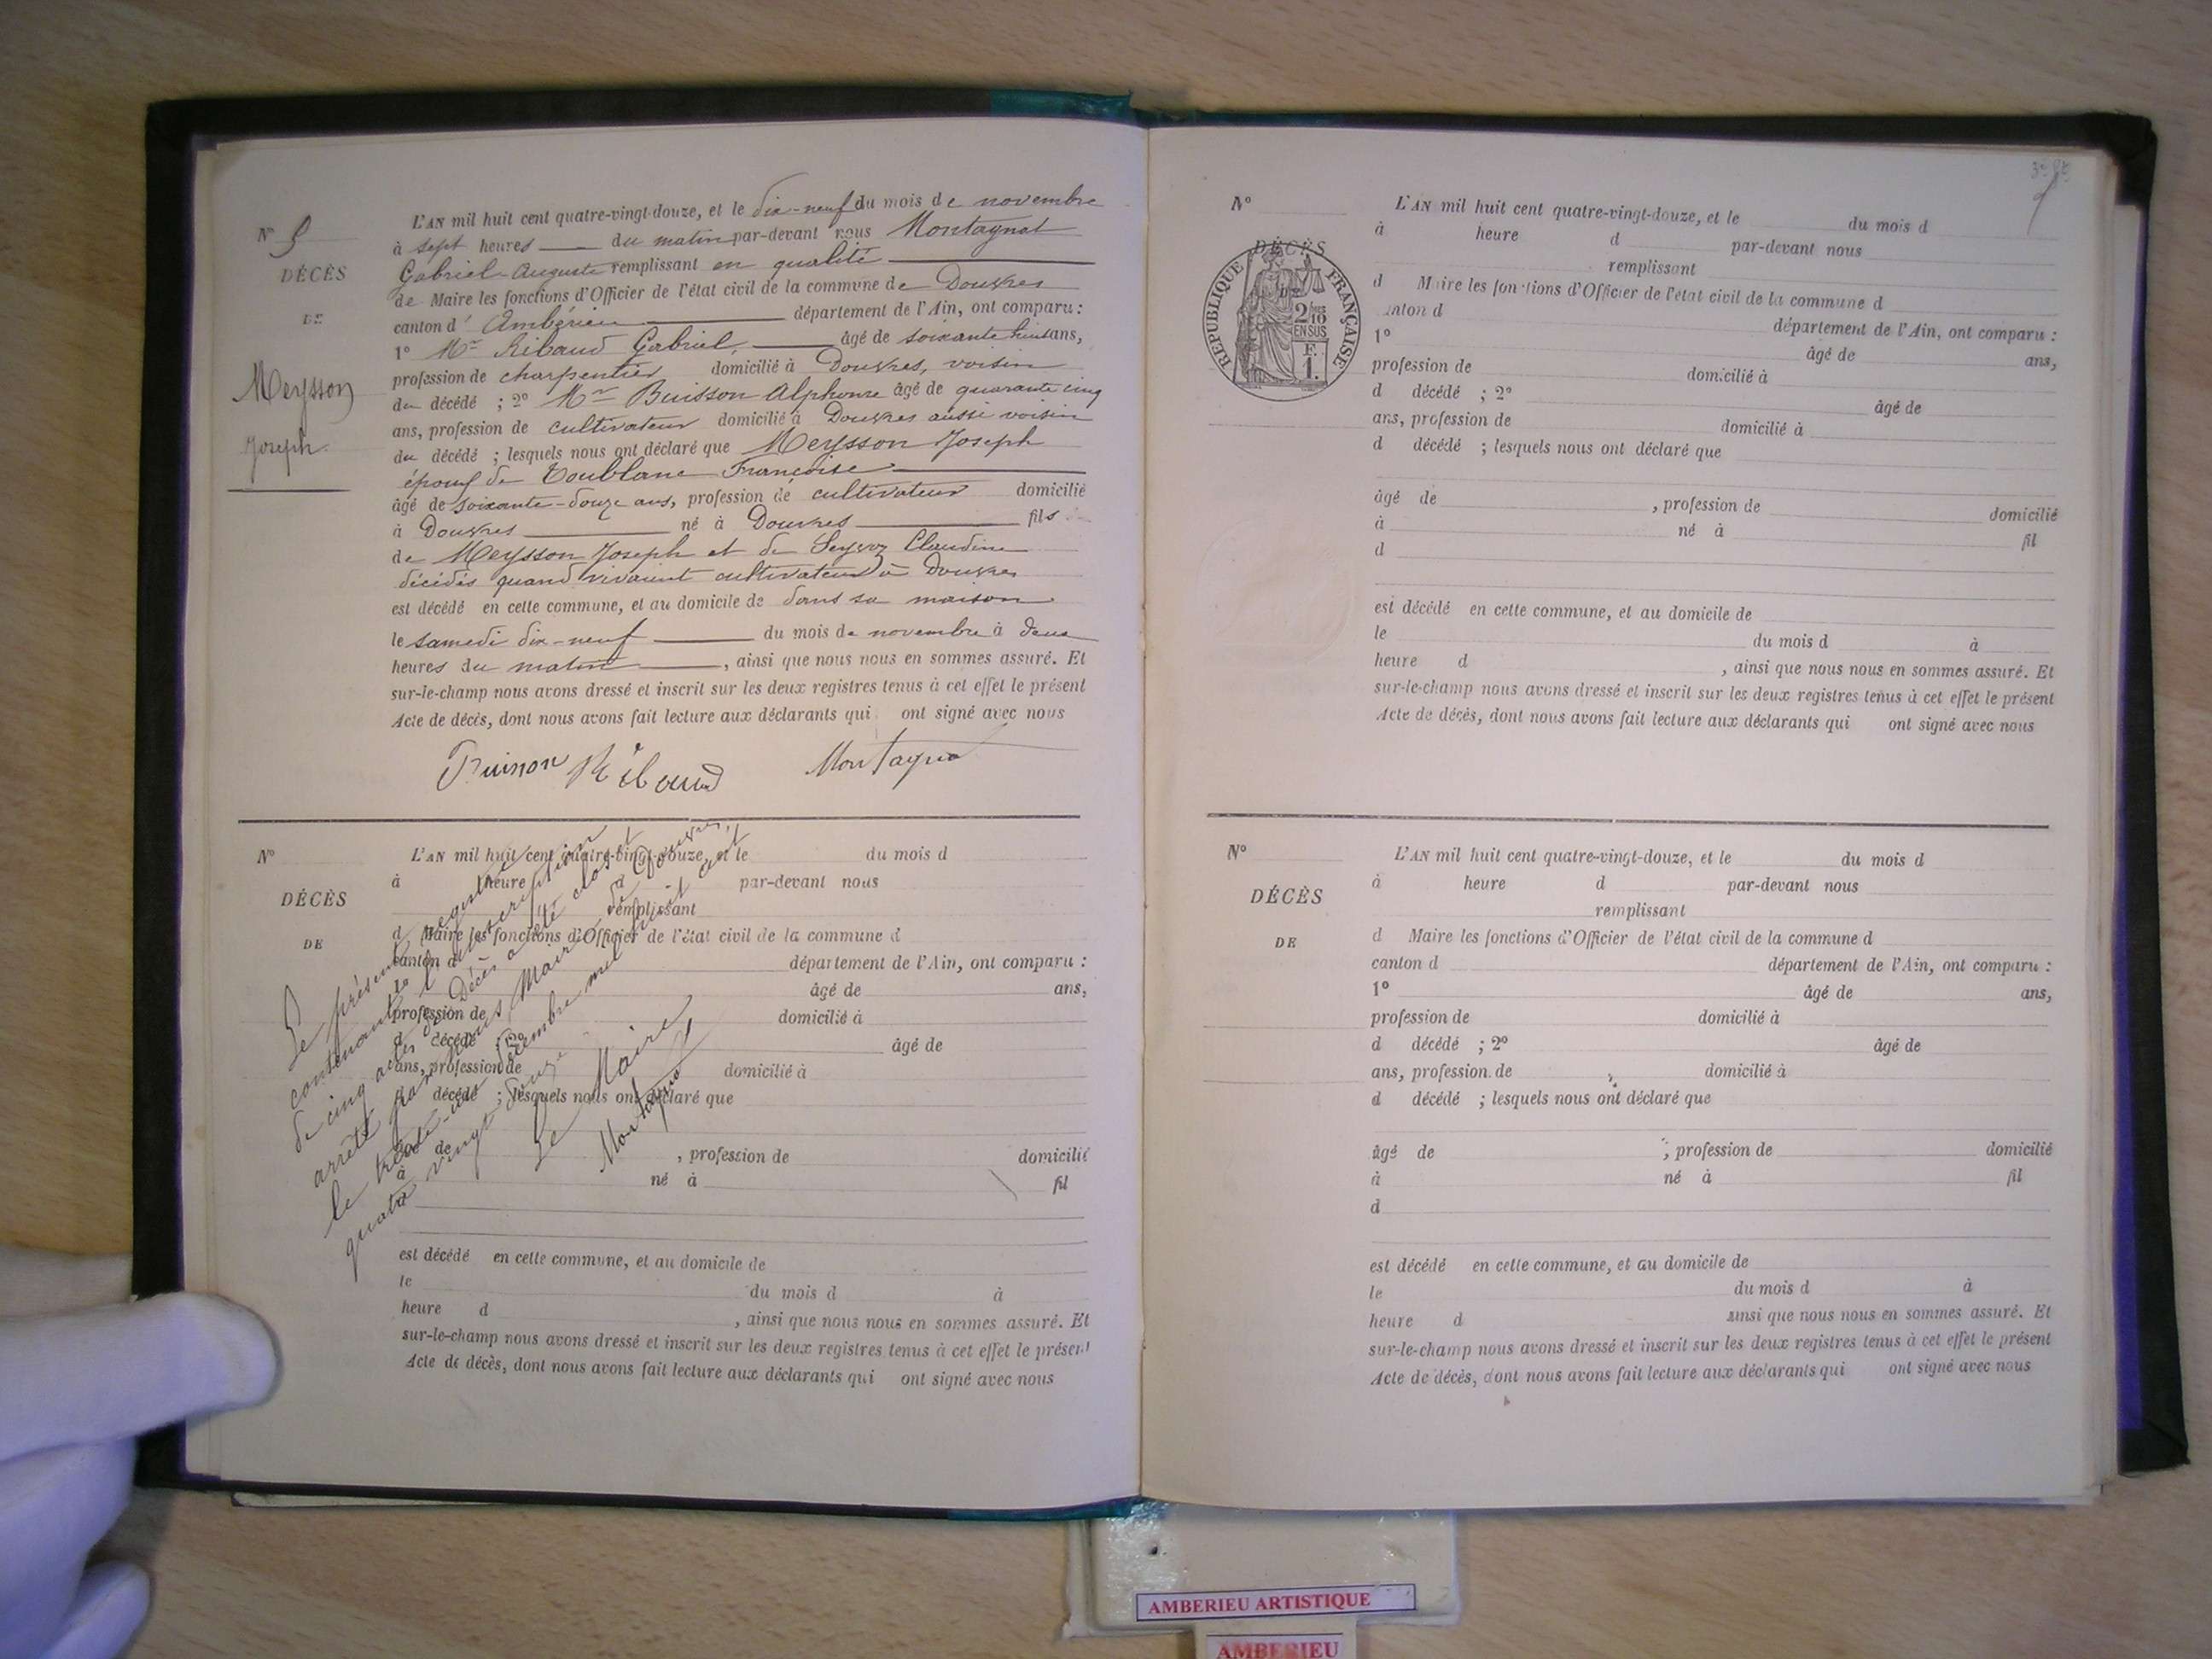 N° 5
DÉCÈS
DE
Meysson
Joseph
L'AN mil huit cent quatre-vingt-douze, et le dix-neuf du mois de novembre
à sept heures du matin par-devant nous Montagnat
Gabriel-Auguste remplissant en qualité
de Maire les fonctions d'Officier de l'état civil de la commune de Douvres
canton d'Ambérieu département de l'Ain, ont comparu :
1° Mr Ribaud Gabriel, âgé de soixante huit ans,
profession de charpentier domicilié à Douvres, voisin
du décédé ; 2° Mr Buisson Alphonse âgé de quarante cinq
ans, profession de cultivateur domicilié à Douvres aussi voisin
du décédé ; lesquels nous ont déclaré que Meysson Joseph
époux de Toublanc Françoise
âgé de soixante-douze ans, profession de cultivateur domicilié
à Douvres né à Douvres fils
de Meysson Joseph et de Claudine
décédés quand vivaient cultivateurs à Douvres
est décédé en cette commune, et au domicile de dans sa maison
le samedi dix-neuf du mois de novembre à deux
heures du matin, ainsi que nous nous en sommes assuré. Et
sur-le-champ nous avons dressé et inscrit sur les deux registres tenus à cet effet le présent
Acte de décès, dont nous avons fait lecture aux déclarants qui ont signé avec nous
Buisson Ribaud Montagnat
N°
DÉCÈS
DE
L'AN mil huit cent quatre-vingt-douze, et le du mois d
à heure d par-devant nous
remplissant
d Maire les fonctions d'Officier de l'état civil de la commune d
canton d département de l'Ain, ont comparu :
1° âgé de ans,
profession de domicilié à
d décédé ; 2° âgé de
ans, profession de domicilié à
d décédé ; lesquels nous ont déclaré que
âgé de , profession de domicilié
à né à fil
d
est décédé en cette commune, et au domicile de
le du mois d à
heure d , ainsi que nous nous en sommes assuré. Et
sur-le-champ nous avons dressé et inscrit sur les deux registres tenus à cet effet le présent
Acte de décès, dont nous avons fait lecture aux déclarants qui ont signé avec nous
Le présent registre
contenant l'inscription
de cinq actes de Décès a été clos et
arrêté par nous Maire de Douvres,
le trente-un décembre mil huit cent
quatre vingt douze
Le Maire
Montagnat
N°
RÉPUBLIQUE FRANÇAISE
DÉCÈS
DE
2/10
EN SUS
F.
1.
L'AN mil huit cent quatre-vingt-douze, et le du mois d
à heure d par-devant nous
remplissant
d Maire les fonctions d'Officier de l'état civil de la commune d
canton d département de l'Ain, ont comparu :
1° âgé de ans,
profession de domicilié à
d décédé ; 2° âgé de
ans, profession de domicilié à
d décédé ; lesquels nous ont déclaré que
âgé de , profession de domicilié
à né à fil
d
est décédé en cette commune, et au domicile de
le du mois d à
heure d , ainsi que nous nous en sommes assuré. Et
sur-le-champ nous avons dressé et inscrit sur les deux registres tenus à cet effet le présent
Acte de décès, dont nous avons fait lecture aux déclarants qui ont signé avec nous
N°
DÉCÈS
DE
L'AN mil huit cent quatre-vingt-douze, et le du mois d
à heure d par-devant nous
remplissant
d Maire les fonctions d'Officier de l'état civil de la commune d
canton d département de l'Ain, ont comparu :
1° âgé de ans,
profession de domicilié à
d décédé ; 2° âgé de
ans, profession de domicilié à
d décédé ; lesquels nous ont déclaré que
âgé de , profession de domicilié
à né à fil
d
est décédé en cette commune, et au domicile de
le du mois d à
heure d ainsi que nous nous en sommes assuré. Et
sur-le-champ nous avons dressé et inscrit sur les deux registres tenus à cet effet le présent
Acte de décès, dont nous avons fait lecture aux déclarants qui ont signé avec nous
AMBERIEU ARTISTIQUE
AMBERIEU